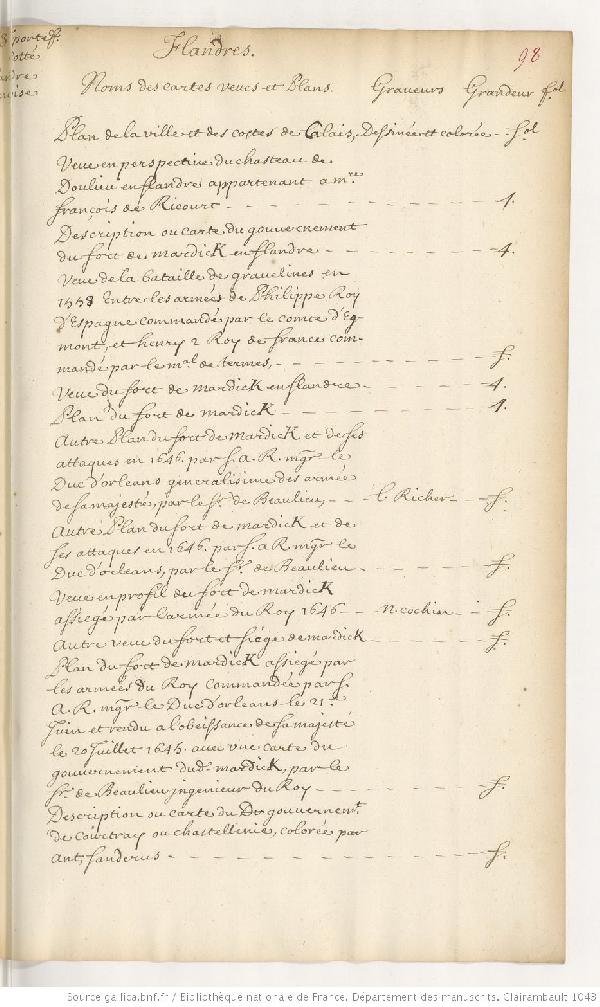 3e portef.
cotté
andre
noise
Flandres.
98
Noms des cartes veues et Plans. Graveurs Grandeur fol
Plan de la ville et des costes de Calais, Dessinée et colorée - fol
Veue en perspective du chasteau de
Doulieu en flandre appartenant a mre
françois de Ricourt - 4.
Description ou carte du gouvernement
du fort de mardick en flandre - 4.
Veue de la bataille de gravelines en
1558 Entre les armées de Philippe Roy
d'Espagne commandé par le comte d'Eg-
mont, et henry 2 Roy de france com-
mandé par le mal de termes, - f.
Veue du fort de mardick en flandre - 4.
Plan du fort de mardick - 4.
Autre Plan du fort de mardick et de ses
attaques en 1646. par s. A. R. mgr le
Duc d'orleans generalissime des armées
de sa majesté, par le sr de Beaulieu, - l. Richer - f.
Autre Plan du fort de mardick et de
ses attaques en 1646. par s. a R. mgr le
Duc d'orleans, par le sr. de Beaulieu - f.
Veue en profil du fort de mardick
assiegé par l'armée du Roy 1646 - n. cochin - f.
Autre veue du fort et siége de mardick - f.
Plan du fort de mardick assiegé par
les armées du Roy commandée par s.
A. R. mgr le Duc d'orleans le 21e
Juin et rendu a l'obeissance de sa magesté
le 20 Juillet 1645. avec une carte du
gouvernement dud. mardick, par le
sr. de Beaulieu ingenieur du Roy - f.
Description ou carte du gouvernent.
de Courtray ou chastellenie, colorée par
Ant, sanderus - f.
Source gallica.bnf.fr / Bibliothèque nationale de France. Département des manuscrits. Clairambault 1043